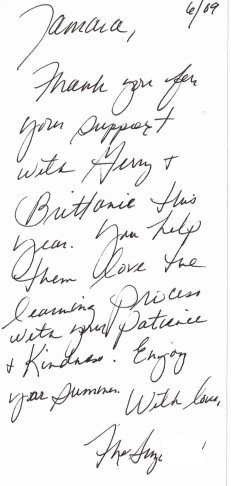 6/09
Tamara,
Thank you for
your support
with Gerry +
Brittanie this
year. You help
them love the
learning process
with your patience
+ Kindness. Enjoy
your summer.
With love,
The